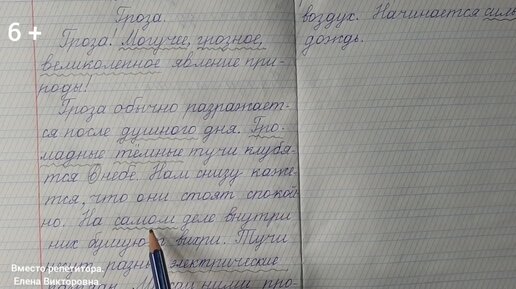 6 +
Гроза.
Гроза! Могучее, грозное,
великолепное явление при-
роды!
Гроза обычно разражает-
ся после душного дня. Гро-
мадные тёмные тучи клубя-
тся в небе. Нам снизу каже-
тся, что они стоят спокой-
но. На самом деле внутри
них бушуют вихри. Тучи
разные электрические
про-
воздух. Начинается
дождь.
Вместо репетитора.
Елена Викторовна.